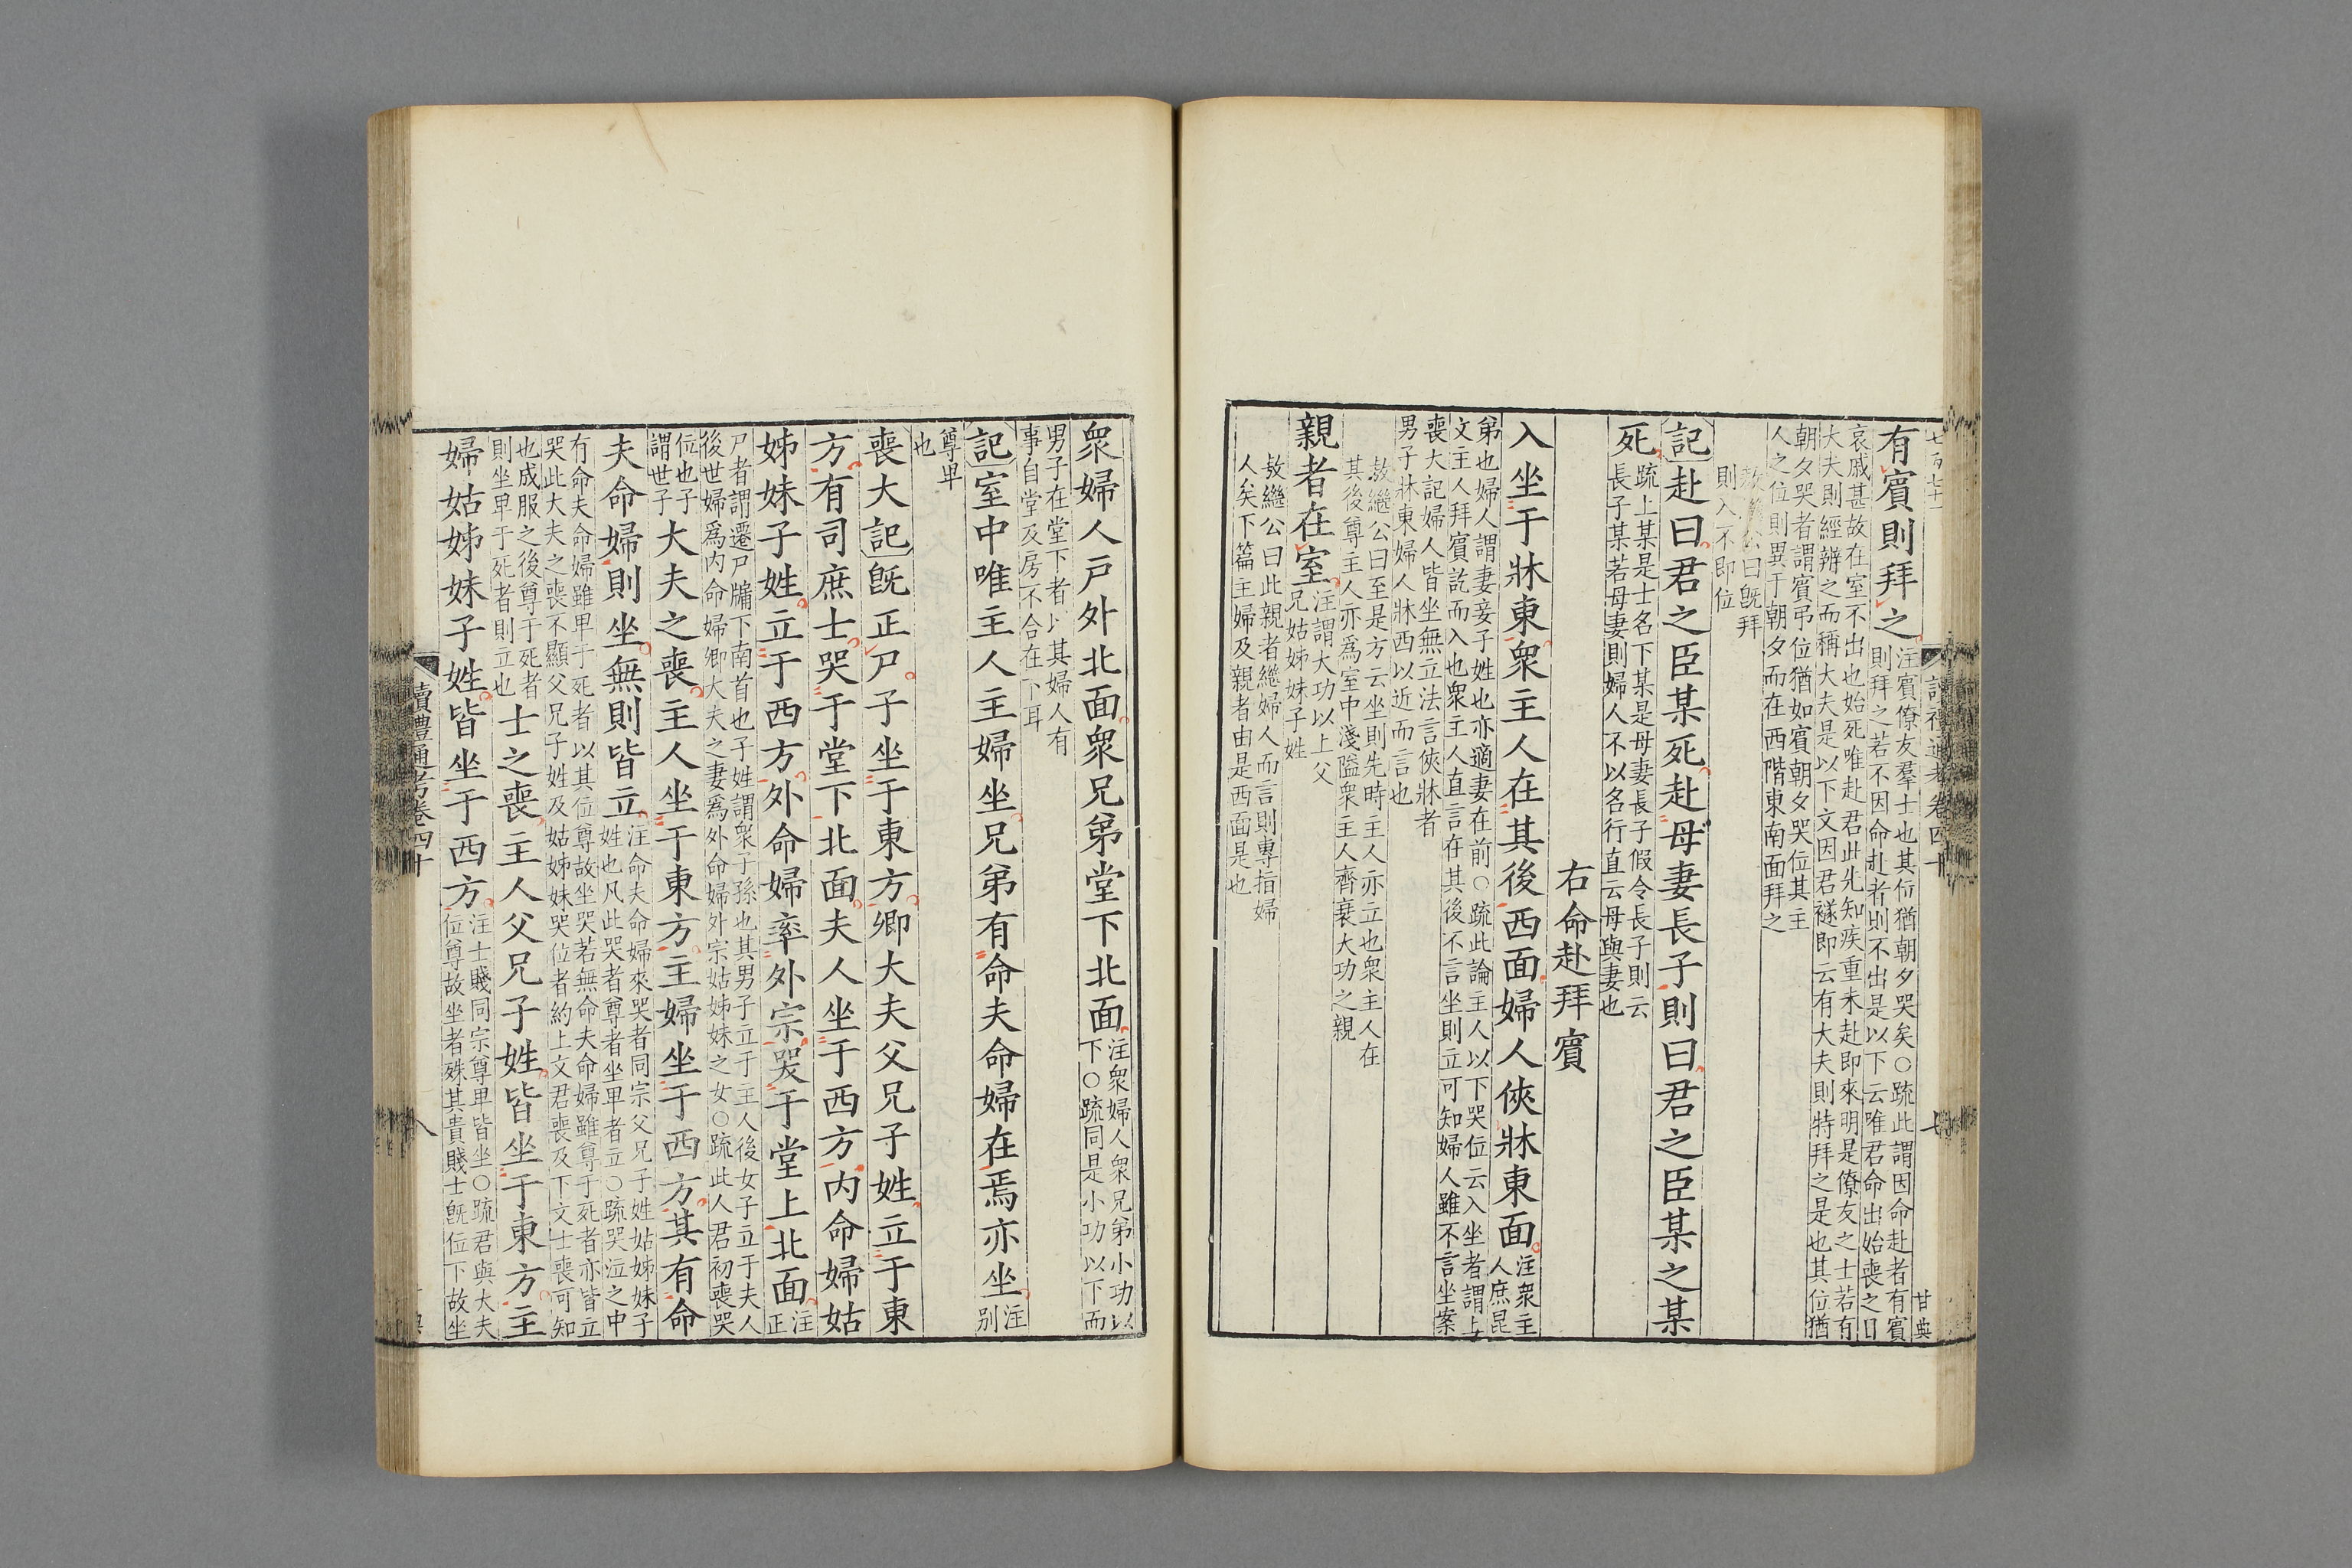 讀禮通考卷四十
七
甘典
有賓則拜之注賓僚友羣士也其位猶朝夕哭矣○疏此謂因命赴者有賓
則拜之若不因命赴者則不出是以下云唯君命出始喪之日
哀戚甚故在室不出也始死唯赴君此先知疾重未赴即來明是僚友之士若有
大夫則經辨之而稱大夫是以下文因君襚即云有大夫則特拜之是也其位猶
朝夕哭者謂賓弔位猶如賓朝夕哭位其主
人之位則異于朝夕而在西階東南面拜之
敖繼公曰既拜
則入不即位
記赴曰君之臣某死赴母妻長子則曰君之臣某之某
死疏上某是士名下某是母妻長子假令長子則云
長子某若母妻則婦人不以名行直云母與妻也
右命赴拜賓
入坐于牀東衆主人在其後西面婦人俠牀東面注衆主
人庶昆
弟也婦人謂妻妾子姓也亦適妻在前○疏此論主人以下哭位云入坐者謂上
文主人拜賓訖而入也衆主人直言在其後不言坐則立可知婦人雖不言坐案
喪大記婦人皆坐無立法言俠牀者
男子牀東婦人牀西以近而言也
敖繼公曰至是方云坐則先時主人亦立也衆主人在
其後尊主人亦爲室中淺隘衆主人齊衰大功之親
親者在室注謂大功以上父
兄姑姊妹子姓
敖繼公曰此親者繼婦人而言則專指婦
人矣下篇主婦及親者由是西面是也
衆婦人戸外北面衆兄弟堂下北面注衆婦人衆兄弟小功以
下○疏同是小功以下而
男子在堂下者以其婦人有
事自堂及房不合在下耳
記室中唯主人主婦坐兄弟有命夫命婦在焉亦坐注
别
尊卑
也
喪大記既正尸子坐于東方卿大夫父兄子姓立于東
方有司庶士哭于堂下北面夫人坐于西方内命婦姑
姊妹子姓立于西方外命婦率外宗哭于堂上北面注
正
尸者謂遷尸牖下南首也子姓謂衆子孫也其男子立于主人後女子立于夫人
後世婦爲内命婦卿大夫之妻爲外命婦外宗姑姊妹之女○疏此人君初喪哭
位也子
謂世子大夫之喪主人坐于東方主婦坐于西方其有命
夫命婦則坐無則皆立注命夫命婦來哭者同宗父兄子姓姑姊妹子
姓也凡此哭者尊者坐卑者立○疏哭泣之中
有命夫命婦雖卑于死者以其位尊故坐哭若無命夫命婦雖尊于死者亦皆立
哭此大夫之喪不顯父兄子姓及姑姊妹哭位者約上文君喪及下文士喪可知
也成服之後尊于死者
則坐卑于死者則立也士之喪主人父兄子姓皆坐于東方主
婦姑姊妹子姓皆坐于西方注士賤同宗尊卑皆坐○疏君與大夫
位尊故坐者殊其貴賤士既位下故坐
讀禮通考卷四十
八